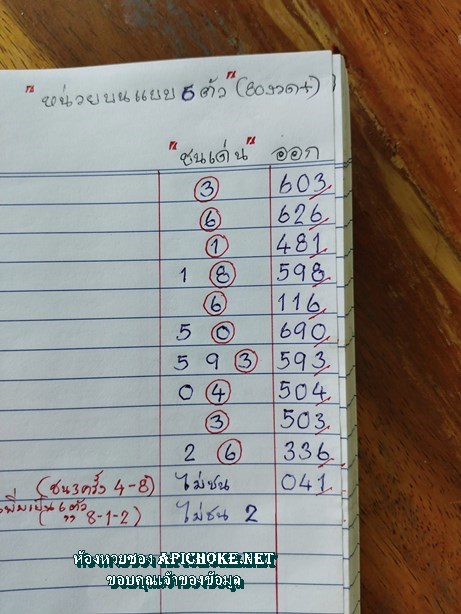 "หน่วยบนแบบ 5 ตัว" (80งวด+)
"ชนเด่น" ออก
3 603
6 626
1 481
1 8 598
6 116
5 0 690
5 9 3 593
0 4 504
3 503
2 6 336
(ชน 3 ครั้ง 4-8) ไม่ชน 041
เพิ่มเป็น 6 ตัว
( " 8-1-2) ไม่ชน 2
ห้องหวยซอง APICHOKE.NET
ขอบคุณเจ้าของข้อมูล